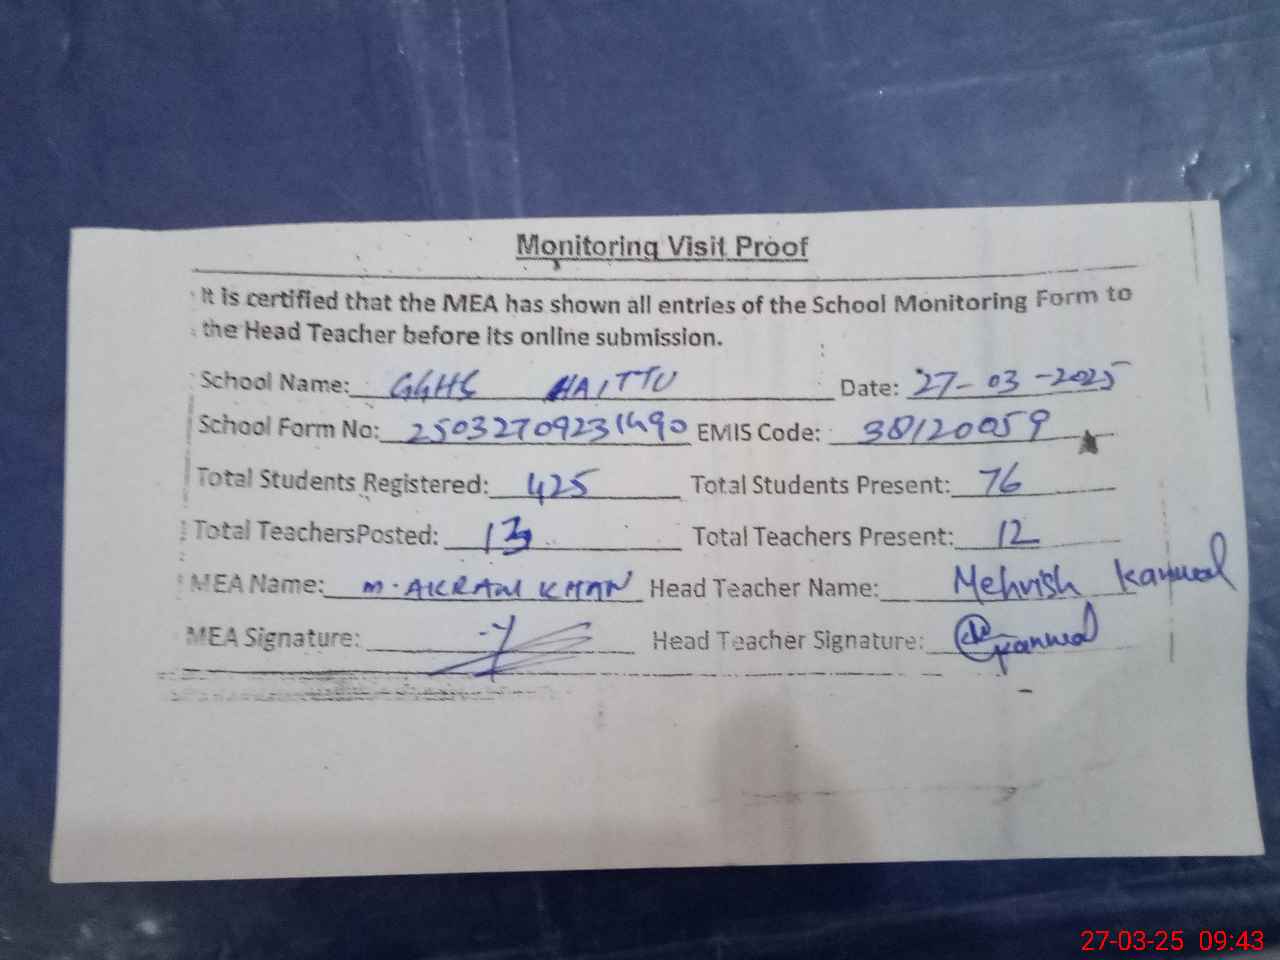 Monitoring Visit Proof
It is certified that the MEA has shown all entries of the School Monitoring Form to
the Head Teacher before its online submission.
School Name: GGHS HAITTU Date: 27-03-2025
School Form No: 25032709231490 EMIS Code: 38120059
Total Students Registered: 425 Total Students Present: 76
Total TeachersPosted: 13 Total Teachers Present: 12
MEA Name: M. AKRAM KHAN Head Teacher Name: Mehvish Kanwal
MEA Signature: Head Teacher Signature: Kanwal
27-03-25 09:43